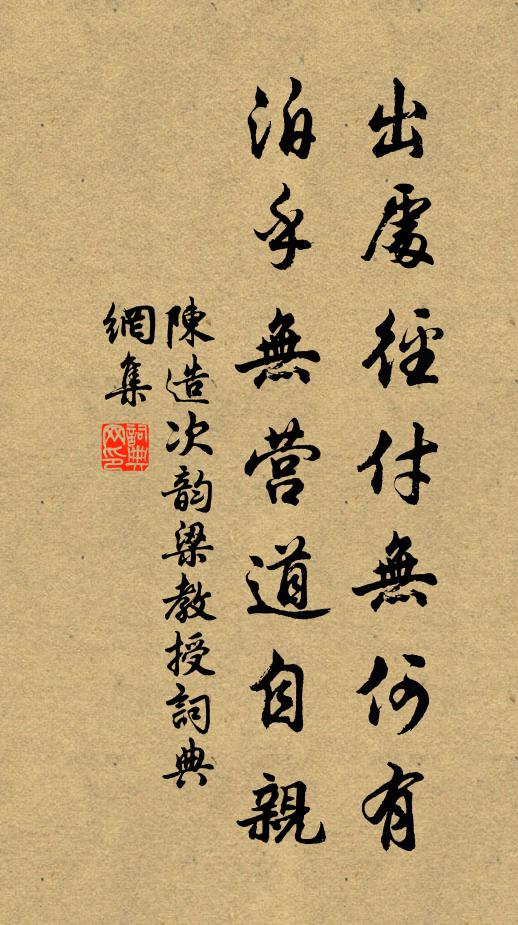 出處徑付無何有
泊乎無營道自親
陳造次韵梁教授詞典
網集
詞典
网印